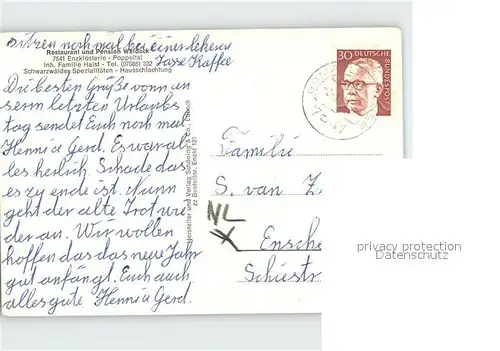 Sitzen noch mal bei einer leheren
Tasse Kaffee
Restaurant und Pension Waldeck
7541 Enzklösterle - Poppeltal
Inh. Familie Haist - Tel. (07085) 332
Schwarzwälder Spezialitäten - Hausschlachtung
Die besten Grüße vonn an
serm letzten Urlaubs
tag sendet Euch noch mal
Henni u Gerd. Es war al
les herlich. Schade das
es zu ende ist. Nunn
geht der alte Trot wie
der an. Wir wollen
hoffen das das neue Jahr
gut anfängt. Euch auch
alles gute Henni u Gerd.
Hersteller und Verlag Schöning & Co., Lübeck
30
DEUTSCHE
BUNDESPOST
Familie
S. van Z
NL
Ensche
Schiestr
privacy protection
Datenschutz